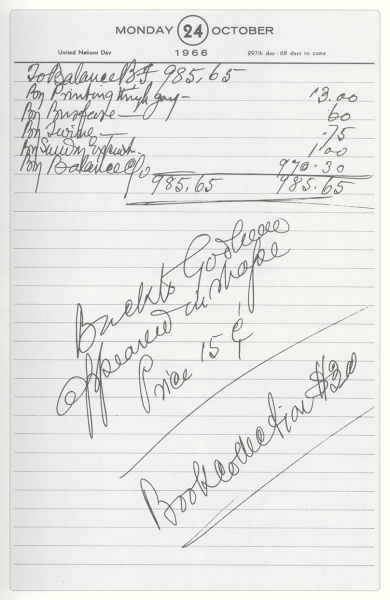 MONDAY 24 OCTOBER
1966
United Nations Day 297th day - 68 days to come
To Balance B/F 985,65
By Printing 13.00
By Busfare — 60
By Twine — .75
By Sundry 1.00
By Balance C/o 970.30
985,65 985.65
Back to Godhead
appeared in shape
Price 15¢
Book collection $20